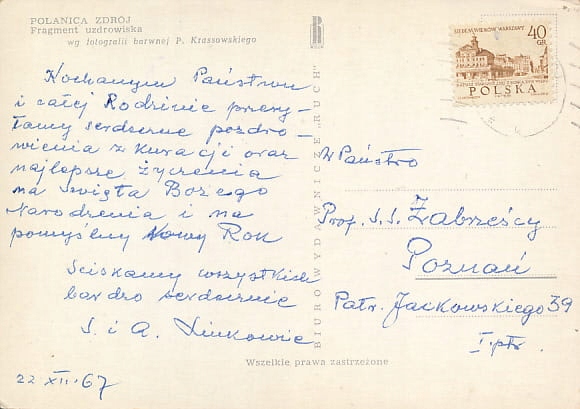 POLANICA ZDRÓJ
Fragment uzdrowiska
wg fotografii barwnej P. Krassowskiego
Kochanym Państwu
i całej Rodzinie przesy-
łamy serdeczne pozdro-
wienia z kuracji oraz
najlepsze życzenia
na święta Bożego
Narodzenia i na
pomyślny Nowy Rok
Ściskamy wszystkich
bardzo serdecznie
S. i A. Linkowie
22 XII. 67
BIURO WYDAWNICZE „RUCH"
SIEDEM WIEKÓW WARSZAWY
40 GR
POLSKA
W Państwo
Prof. S.S. Zabrzescy
Poznań
Patr. Jackowskiego 39
I ptr.
Wszelkie prawa zastrzeżone